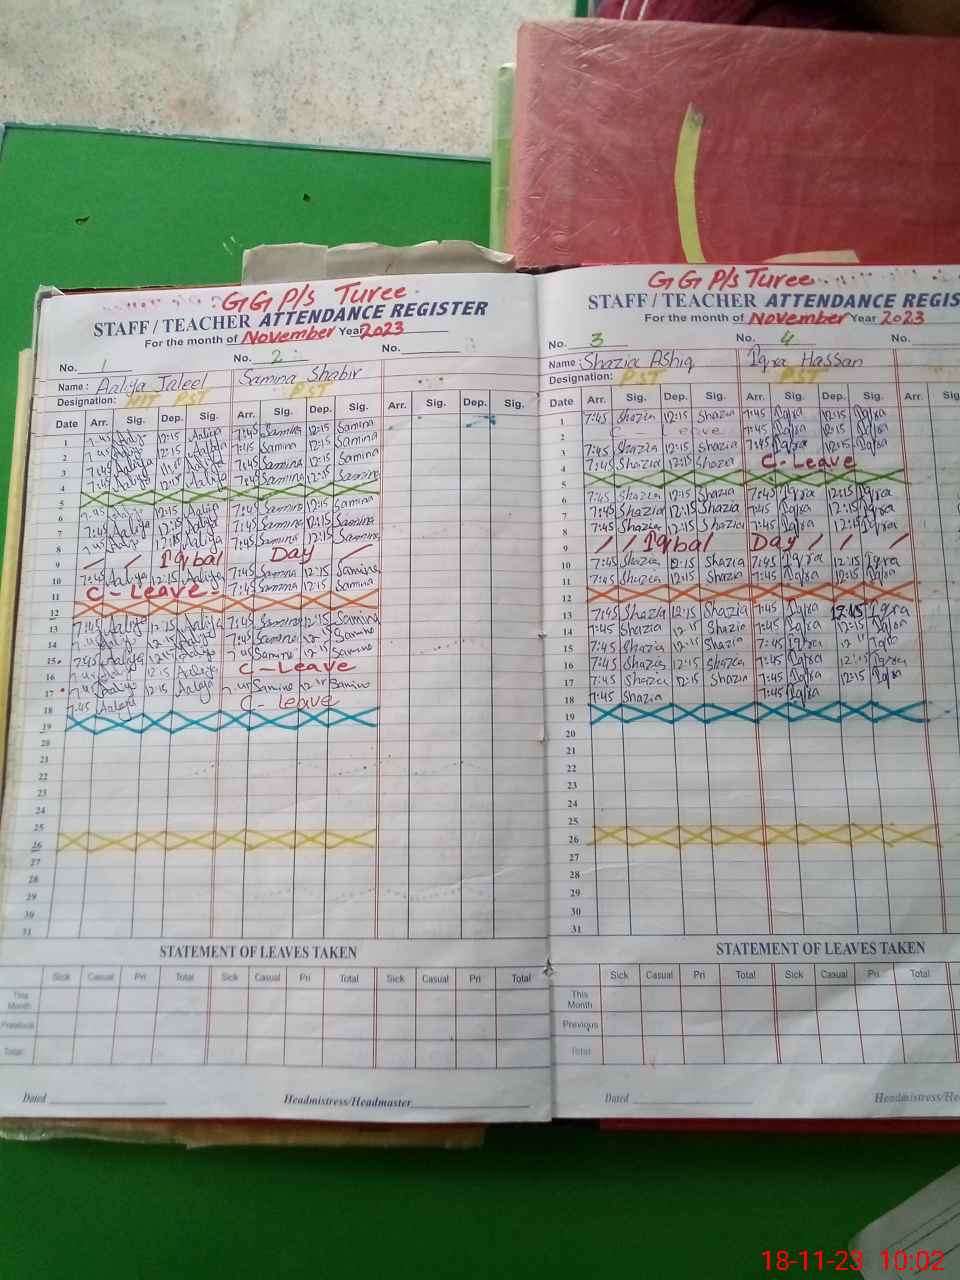 GG P/s Turee
STAFF / TEACHER ATTENDANCE REGISTER
For the month of November Year 2023
No. 1 No. 2 No.
Name: Aaliya Jaleel Samina Shabir
Designation: HT PST PST
Date Arr. Sig. Dep. Sig. Arr. Sig. Dep. Sig. Arr. Sig. Dep. Sig.
1 7:45 Aaliya 12:15 Aaliya 7:45 Samina 12:15 Samina
2 7:45 Aaliya 12:15 Aaliya 7:45 Samina 12:15 Samina
3 7:45 Aaliya Aaliya 7:45 Samina 12:15 Samina
4 7:45 Aaliya 12:15 Aaliya 7:45 Samina 12:15 Samina
5
6 7:45 Aaliya 12:15 Aaliya 7:45 Samina 12:15 Samina
7 7:45 Aaliya 12:15 Aaliya 7:45 Samina 12:15 Samina
8 7:45 Aaliya 12:15 Aaliya 7:45 Samina 12:15 Samina
9 Iqbal Day
10 7:45 Aaliya 12:15 Aaliya 7:45 Samina 12:15 Samina
11 C-Leave 7:45 Samina 12:15 Samina
12
13 7:45 Aaliya 12:15 Aaliya 7:45 Samina 12:15 Samina
14 7:45 Aaliya 12:15 Aaliya 7:45 Samina 12:15 Samina
15 7:45 Aaliya 12:15 Aaliya 7:45 Samina 12:15 Samina
16 7:45 Aaliya 12:15 Aaliya C-Leave
17 7:45 Aaliya 12:15 Aaliya 7:45 Samina 12:15 Samina
18 7:45 Aaliya C-leave
19
20
21
22
23
24
25
26
27
28
29
30
31
STATEMENT OF LEAVES TAKEN
Sick Casual Pri Total Sick Casual Pri Total Sick Casual Pri Total
This Month
Previous
Total
Dated Headmistress/Headmaster
GG P/s Turee
STAFF / TEACHER ATTENDANCE REGIS
For the month of November Year 2023
No. 3 No. 4 No.
Name: Shazia Ashiq Iqra Hassan
Designation: PST PST
Date Arr. Sig. Dep. Sig. Arr. Sig. Dep. Sig. Arr.
1 7:45 Shazia 12:15 Shazia 7:45 Iqra 12:15 Iqra
2 C Leave 7:45 Iqra 12:15 Iqra
3 7:45 Shazia 12:15 Shazia 7:45 Iqra 12:15 Iqra
4 7:45 Shazia 12:15 Shazia C-Leave
5
6 7:45 Shazia 12:15 Shazia 7:45 Iqra 12:15 Iqra
7 7:45 Shazia 12:15 Shazia 7:45 Iqra 12:15 Iqra
8 7:45 Shazia 12:15 Shazia 7:45 Iqra 12:15 Iqra
9 Iqbal Day
10 7:45 Shazia 12:15 Shazia 7:45 Iqra 12:15 Iqra
11 7:45 Shazia 12:15 Shazia 7:45 Iqra 12:15 Iqra
12
13 7:45 Shazia 12:15 Shazia 7:45 Iqra 12:15 Iqra
14 7:45 Shazia 12:15 Shazia 7:45 Iqra 12:15 Iqra
15 7:45 Shazia 12:15 Shazia 7:45 Iqra 12 Iqra
16 7:45 Shazia 12:15 Shazia 7:45 Iqra 12:15 Iqra
17 7:45 Shazia 12:15 Shazia 7:45 Iqra 12:15 Iqra
18 7:45 Shazia 7:45 Iqra
19
20
21
22
23
24
25
26
27
28
29
30
31
STATEMENT OF LEAVES TAKEN
Sick Casual Pri Total Sick Casual Pri Total
This Month
Previous
Total
Dated Headmistress/He
18-11-23 10:02